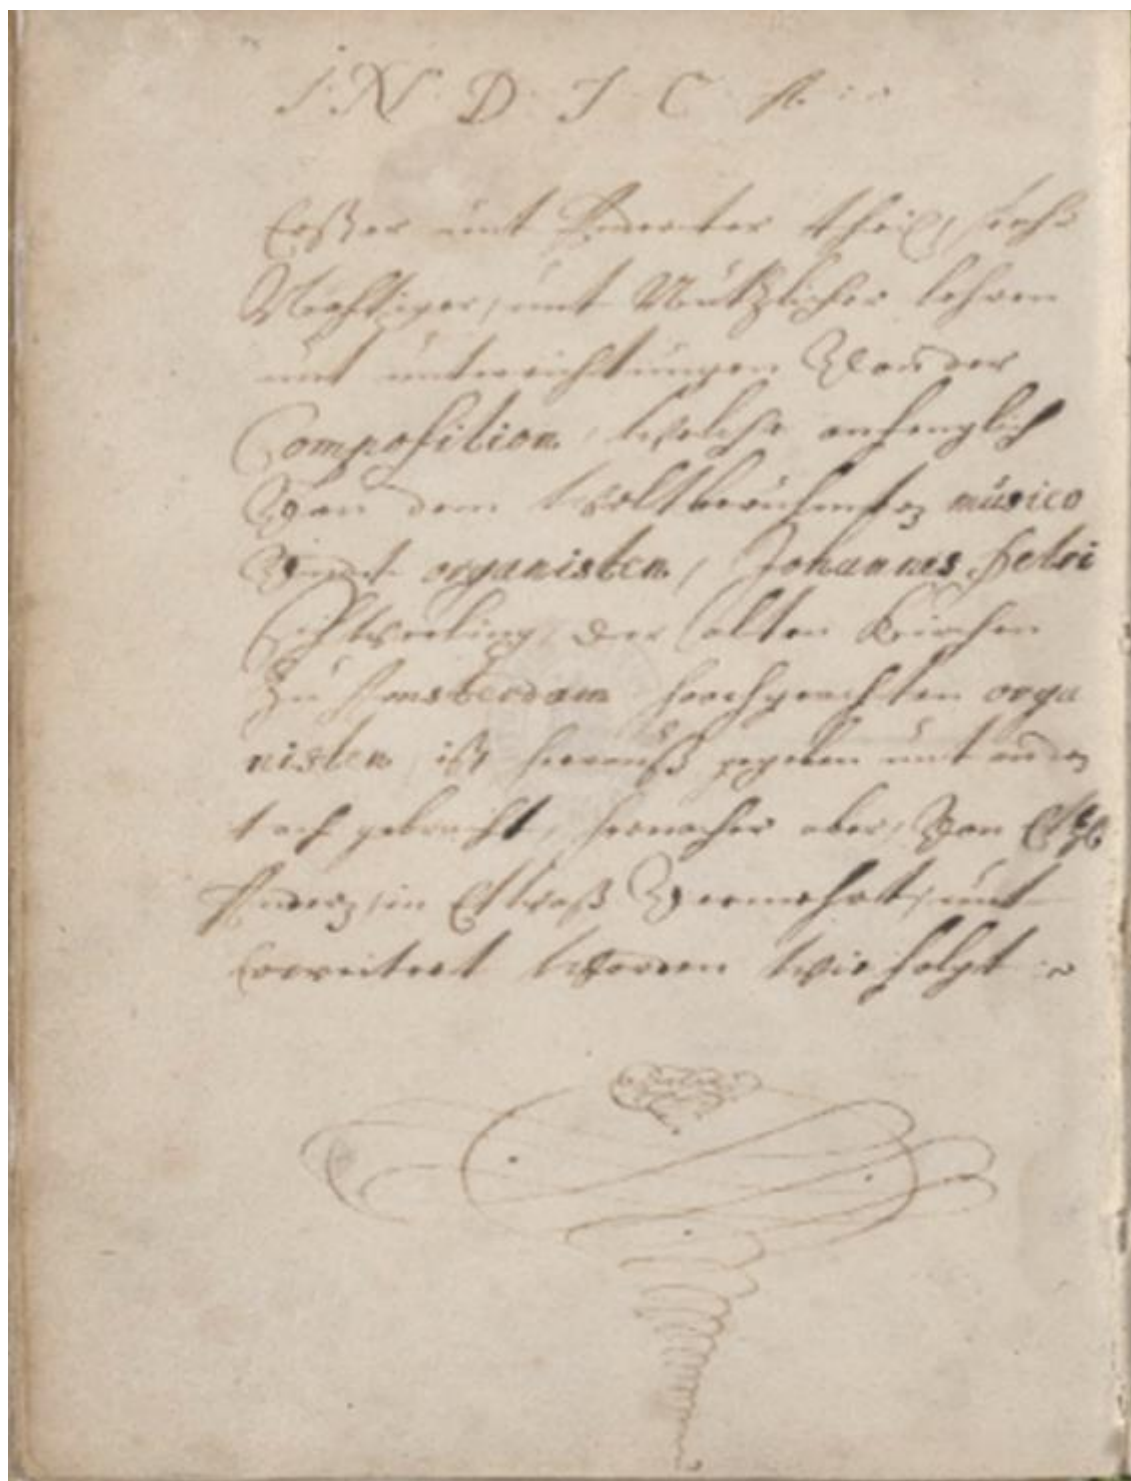 Erster unt Anderter theil, sehr
Wichtiger, unt Nützlicher lehren
unt unterrichtungen Von der
Composition, welche anfenglich
Von dem weltberühmten müsico
Vnnt organisten, Johannes Petri
Schweling, der alten Kirchen
Zu Amsterdam hochgeachten orga
nisten, ist herauß gegeben unt an den
tach gebracht, hernacher aber, Von
in Etwaß Vermehrt, unt
Erweitert worden wie folgt